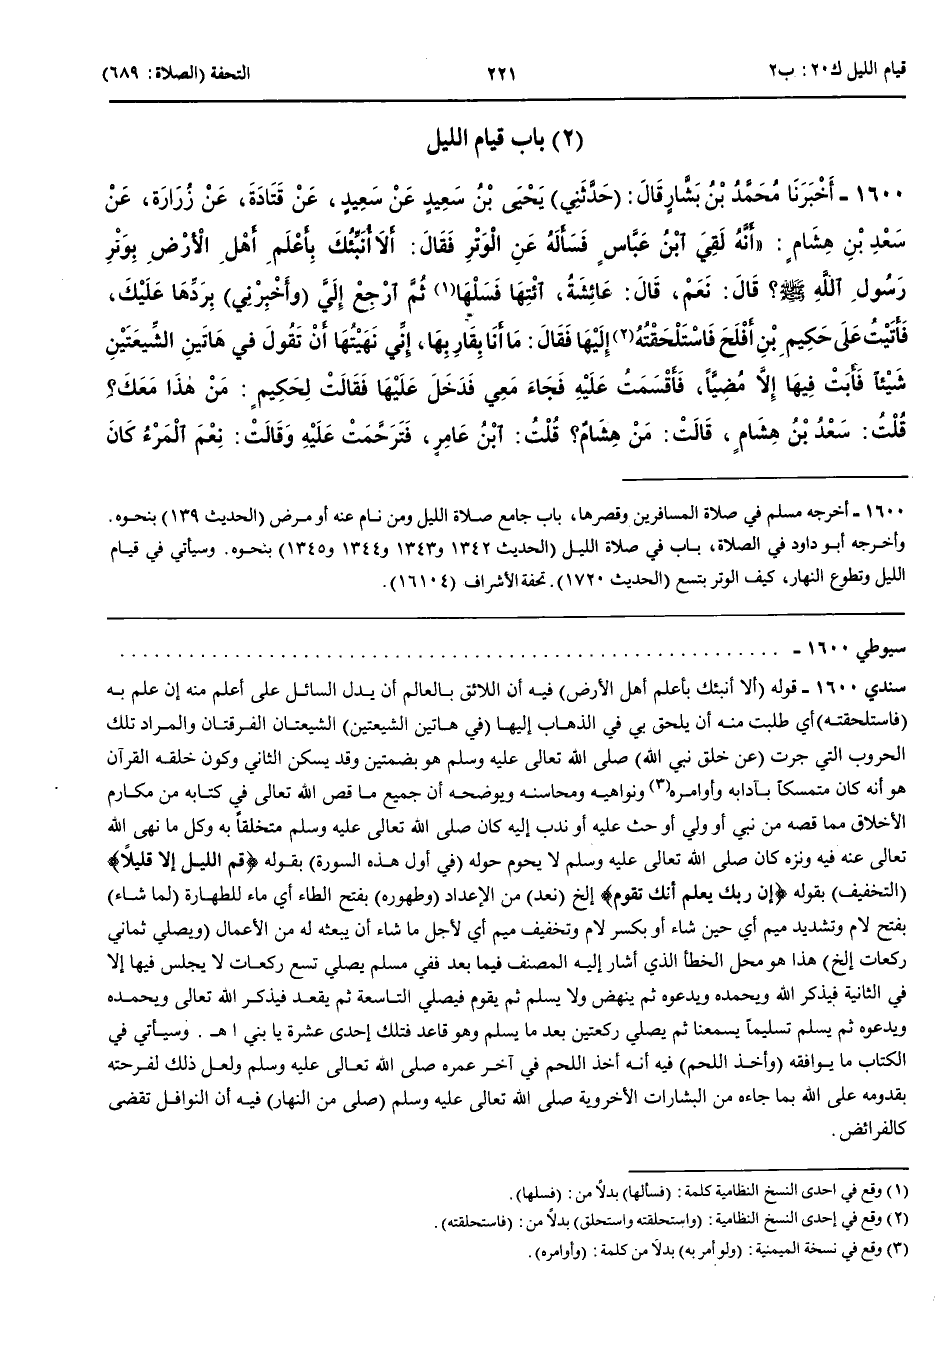 قيام الليل ك٢٠: ب٢ ٢٢١ التحفة (الصلاة: ٦٨٩)
(٢) باب قيام الليل
١٦٠٠ - أَخْبَرَنَا مُحَمَّدُ بْنُ بَشَّارٍ قَالَ: (حَدَّثَنِي) يَحْيَى بْنُ سَعِيدٍ عَنْ سَعِيدٍ، عَنْ قَتَادَةَ، عَنْ زُرَارَةَ، عَنْ
سَعْدِ بْنِ هِشَامٍ: «أَنَّهُ لَقِيَ ٱبْنَ عَبَّاسٍ فَسَأَلَهُ عَنِ الْوَتْرِ فَقَالَ: أَلَا أُنَبِّئُكَ بِأَعْلَمِ أَهْلِ الْأَرْضِ بِوَتْرِ
رَسُولِ ٱللَّهِ ﷺ؟ قَالَ: نَعَمْ، قَالَ: عَائِشَةُ، ٱئْتِهَا فَسَلْهَا(١) ثُمَّ ٱرْجِعْ إِلَيَّ (وَأَخْبِرْنِي) بِرَدِّهَا عَلَيْكَ،
فَأَتَيْتُ عَلَى حَكِيمِ بْنِ أَفْلَحَ فَاسْتَلْحَقْتُهُ(٢) إِلَيْهَا فَقَالَ: مَا أَنَا بِقَارِبِهَا، إِنِّي نَهَيْتُهَا أَنْ تَقُولَ فِي هَاتَيْنِ الشِّيعَتَيْنِ
شَيْئاً فَأَبَتْ فِيهَا إِلَّا مُضِيًّا، فَأَقْسَمْتُ عَلَيْهِ فَجَاءَ مَعِي فَدَخَلَ عَلَيْهَا فَقَالَتْ لِحَكِيمٍ: مَنْ هٰذَا مَعَكَ؟
قُلْتُ: سَعْدُ بْنُ هِشَامٍ، قَالَتْ: مَنْ هِشَامٌ؟ قُلْتُ: ٱبْنُ عَامِرٍ، فَتَرَحَّمَتْ عَلَيْهِ وَقَالَتْ: نِعْمَ الْمَرْءُ كَانَ
١٦٠٠ - أخرجه مسلم في صلاة المسافرين وقصرها، باب جامع صلاة الليل ومن نام عنه أو مرض (الحديث ١٣٩) بنحوه.
وأخرجه أبو داود في الصلاة، باب في صلاة الليل (الحديث ١٣٤٢ و١٣٤٣ و١٣٤٤ و١٣٤٥) بنحوه. وسيأتي في قيام
الليل وتطوع النهار، كيف الوتر بتسع (الحديث ١٧٢٠). تحفة الأشراف (١٦١٠٤).
سيوطي ١٦٠٠ - . . . . . . . . . . . . . . . . . . . . . . . . . . . . . . . . . . . . . . . .
سندي ١٦٠٠ - قوله (ألا أنبئك بأعلم أهل الأرض) فيه أن اللائق بالعالم أن يدل السائل على أعلم منه إن علم به
(فاستلحقته) أي طلبت منه أن يلحق بي في الذهاب إليها (في هاتين الشيعتين) الشيعتان الفرقتان والمراد تلك
الحروب التي جرت (عن خلق نبي الله) صلى الله تعالى عليه وسلم هو بضمتين وقد يسكن الثاني وكون خلقه القرآن
هو أنه كان متمسكاً بآدابه وأوامره(٣) ونواهيه ومحاسنه ويوضحه أن جميع ما قص الله تعالى في كتابه من مكارم
الأخلاق مما قصه من نبي أو ولي أو حث عليه أو ندب إليه كان صلى الله تعالى عليه وسلم متخلقاً به وكل ما نهى الله
تعالى عنه فيه ونزه كان صلى الله تعالى عليه وسلم لا يحوم حوله (في أول هذه السورة) بقوله ﴿قم الليل إلا قليلاً﴾
(التخفيف) بقوله ﴿إن ربك يعلم أنك تقوم﴾ إلخ (نعد) من الإعداد (وطهوره) بفتح الطاء أي ماء للطهارة (لما شاء)
بفتح لام وتشديد ميم أي حين شاء أو بكسر لام وتخفيف ميم أي لأجل ما شاء أن يبعثه له من الأعمال (ويصلي ثماني
ركعات إلخ) هذا هو محل الخطأ الذي أشار إليه المصنف فيما بعد ففي مسلم يصلي تسع ركعات لا يجلس فيها إلا
في الثانية فيذكر الله ويحمده ويدعوه ثم ينهض ولا يسلم ثم يقوم فيصلي التاسعة ثم يقعد فيذكر الله تعالى ويحمده
ويدعوه ثم يسلم تسليماً يسمعنا ثم يصلي ركعتين بعد ما يسلم وهو قاعد فتلك إحدى عشرة يا بني ا هـ. وسيأتي في
الكتاب ما يوافقه (وأخذ اللحم) فيه أنه أخذ اللحم في آخر عمره صلى الله تعالى عليه وسلم ولعل ذلك لفرحته
بقدومه على الله بما جاءه من البشارات الأخروية صلى الله تعالى عليه وسلم (صلى من النهار) فيه أن النوافل تقضى
كالفرائض.
(١) وقع في احدى النسخ النظامية كلمة: (فسألها) بدلاً من: (فسلها).
(٢) وقع في إحدى النسخ النظامية: (واستحلقته واستحلق) بدلاً من: (فاستحلقته).
(٣) وقع في نسخة الميمنية: (ولو أمر به) بدلاً من كلمة: (وأوامره).